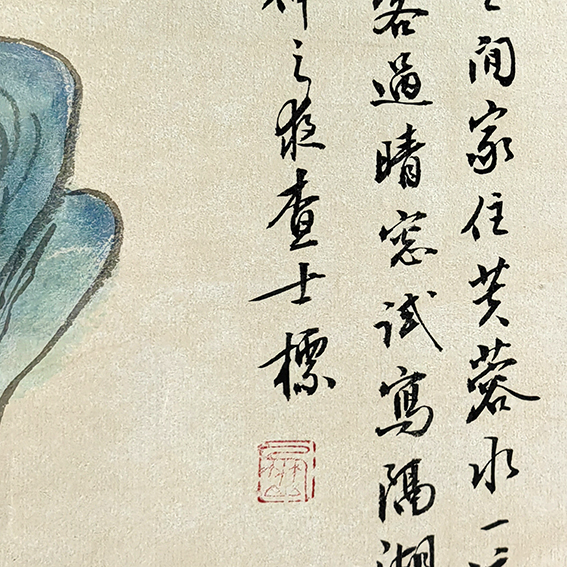 间家住芙蓉水一
客過晴窓试寫隔湖
之发查士標